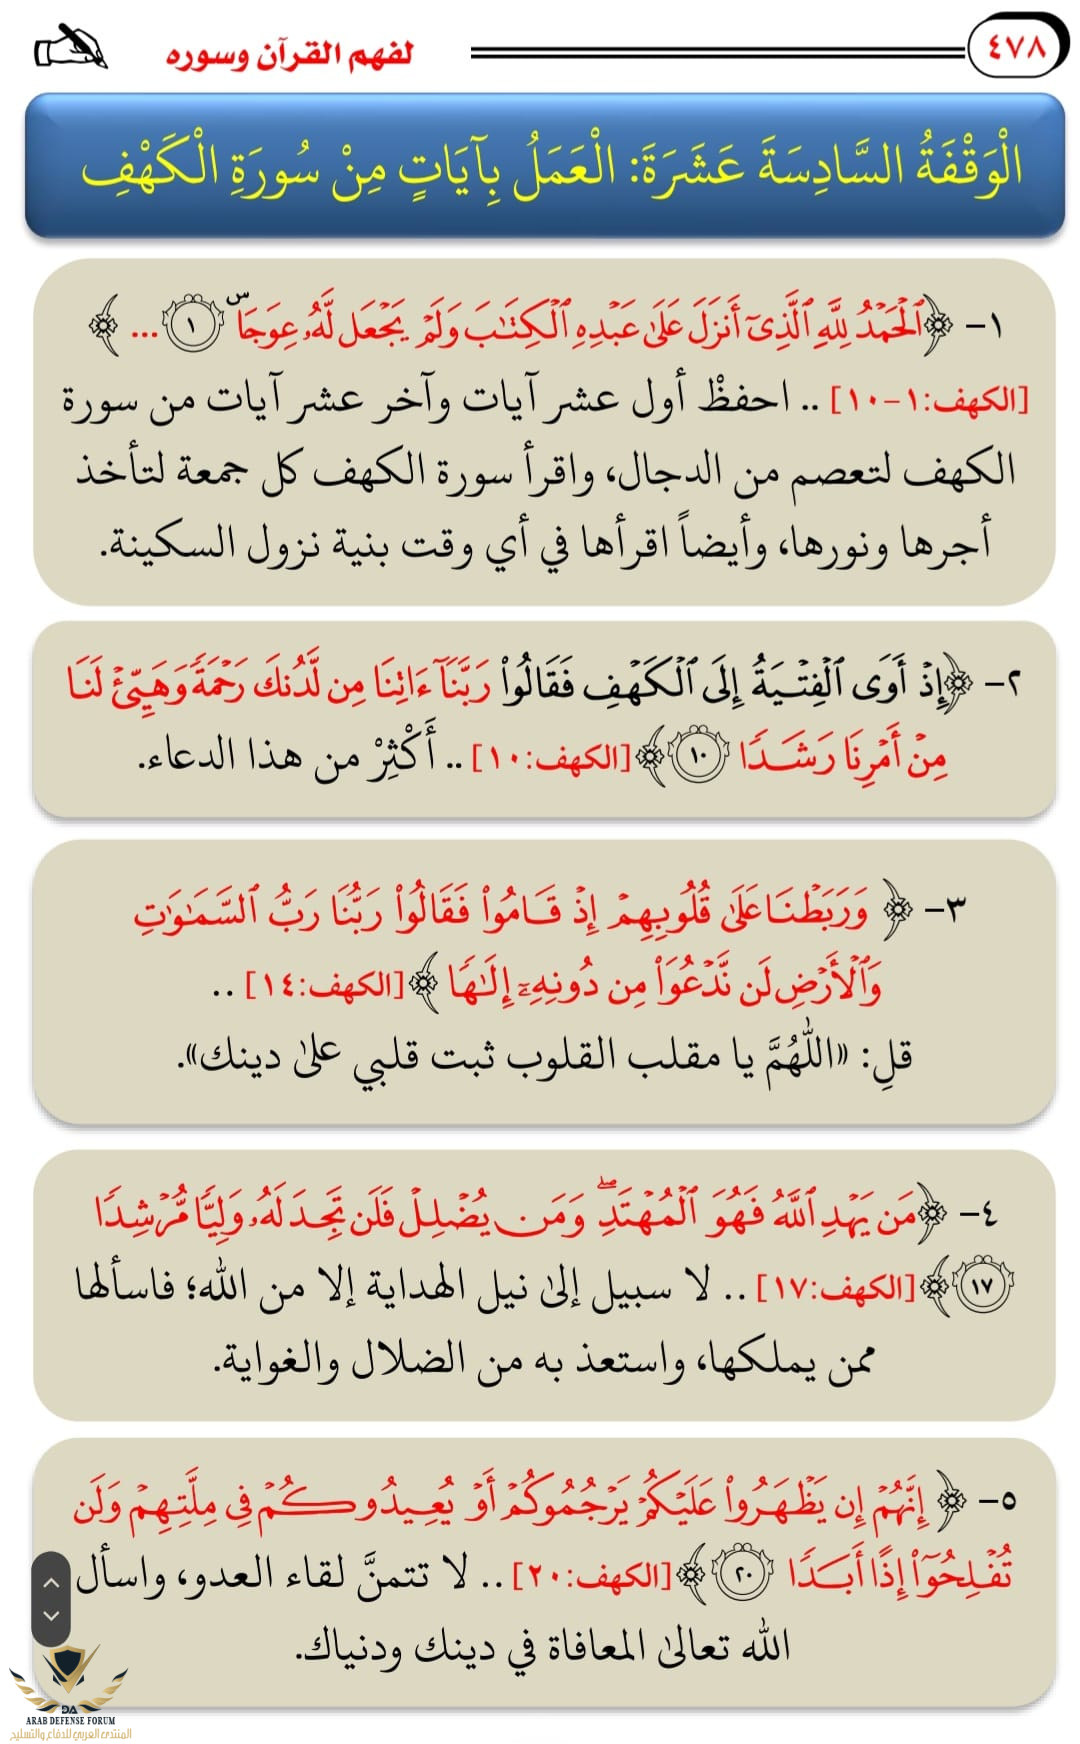 ٤٧٨
لفهم القرآن وسوره
الْوَقْفَةُ السَّادِسَةَ عَشَرَةَ: الْعَمَلُ بِآيَاتٍ مِنْ سُورَةِ الْكَهْفِ
١- ﴿ٱلۡحَمۡدُ لِلَّهِ ٱلَّذِيٓ أَنزَلَ عَلَىٰ عَبۡدِهِ ٱلۡكِتَٰبَ وَلَمۡ يَجۡعَل لَّهُۥ عِوَجَاۜ ١ ... ﴾
[الكهف:١-١٠] .. احفظْ أول عشر آيات وآخر عشر آيات من سورة
الكهف لتعصم من الدجال، واقرأ سورة الكهف كل جمعة لتأخذ
أجرها ونورها، وأيضاً اقرأها في أي وقت بنية نزول السكينة.
٢- ﴿إِذۡ أَوَى ٱلۡفِتۡيَةُ إِلَى ٱلۡكَهۡفِ فَقَالُواْ رَبَّنَآ ءَاتِنَا مِن لَّدُنكَ رَحۡمَةٗ وَهَيِّئۡ لَنَا
مِنۡ أَمۡرِنَا رَشَدٗا ١٠﴾ [الكهف:١٠] .. أَكْثِرْ من هذا الدعاء.
٣- ﴿وَرَبَطۡنَا عَلَىٰ قُلُوبِهِمۡ إِذۡ قَامُواْ فَقَالُواْ رَبُّنَا رَبُّ ٱلسَّمَٰوَٰتِ
وَٱلۡأَرۡضِ لَن نَّدۡعُوَاْ مِن دُونِهِۦٓ إِلَٰهٗا﴾ [الكهف:١٤] ..
قلِ: «اللهُمَّ يا مقلب القلوب ثبت قلبي على دينك».
٤- ﴿مَن يَهۡدِ ٱللَّهُ فَهُوَ ٱلۡمُهۡتَدِۖ وَمَن يُضۡلِلۡ فَلَن تَجِدَ لَهُۥ وَلِيّٗا مُّرۡشِدٗا
١٧﴾ [الكهف:١٧] .. لا سبيل إلى نيل الهداية إلا من الله؛ فاسألها
ممن يملكها، واستعذ به من الضلال والغواية.
٥- ﴿إِنَّهُمۡ إِن يَظۡهَرُواْ عَلَيۡكُمۡ يَرۡجُمُوكُمۡ أَوۡ يُعِيدُوكُمۡ فِي مِلَّتِهِمۡ وَلَن
تُفۡلِحُوٓاْ إِذًا أَبَدٗا ٢٠﴾ [الكهف:٢٠] .. لا تتمنَّ لقاء العدو، واسأل
الله تعالى المعافاة في دينك ودنياك.
DA
ARAB DEFENSE FORUM
المنتدى العربي للدفاع والتسليح